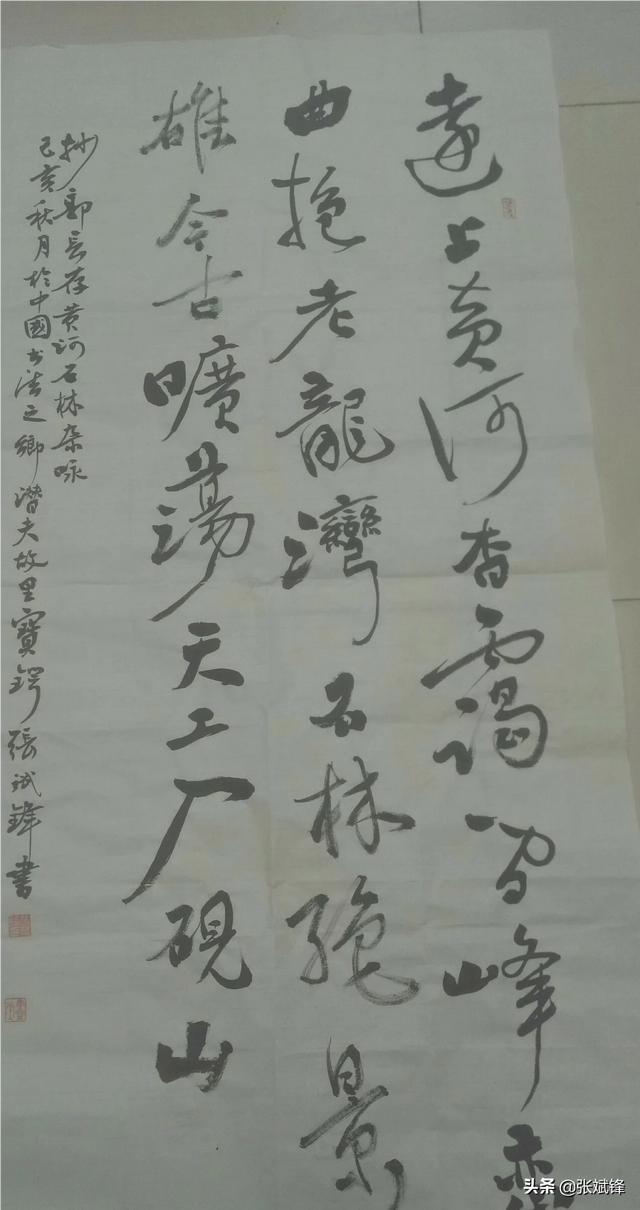 遠上黄河杳靄间峰峦
曲抱老龍灣石林絶景
雄今古曠蕩天工厂硯山
抄郭長存黄河石林杂咏
己亥秋月於中國书法之鄉潜夫故里寶鍔張斌鋒書
头条 @张斌锋